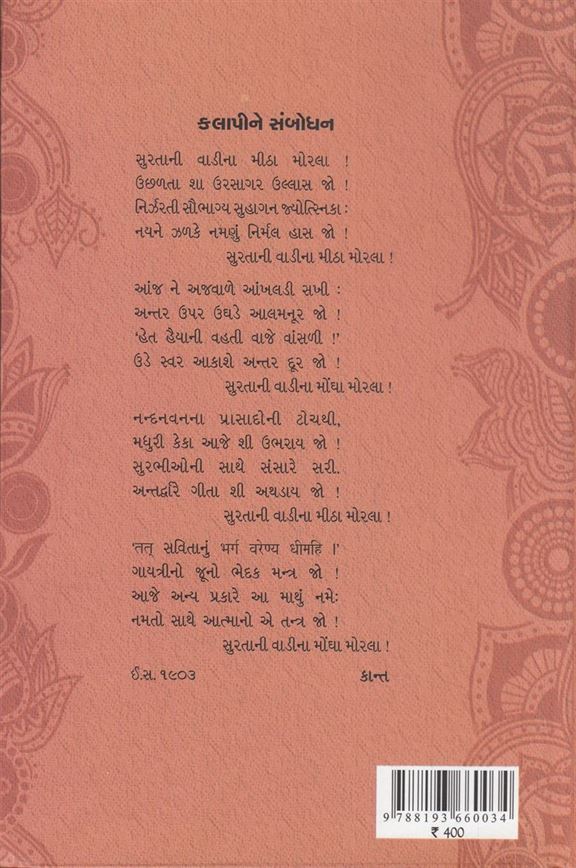 કલાપીને સંબોધન
સુરતાની વાડીના મીઠા મોરલા !
ઉછળતા શા ઉરસાગર ઉલ્લાસ જો !
નિર્ઝરતી સૌભાગ્ય સુહાગન જ્યોત્સ્નિકાઃ
નયને ઝળકે નમણું નિર્મલ હાસ જો !
સુરતાની વાડીના મીઠા મોરલા !
આંજ ને અજવાળે આંખલડી સખી :
અન્તર ઉપર ઉઘડે આલમનૂર જો !
‘હેત હૈયાની વહતી વાજે વાંસળી !’
ઉડે સ્વર આકાશે અન્તર દૂર જો !
સુરતાની વાડીના મોંઘા મોરલા !
નન્દનવનના પ્રાસાદોની ટોચથી,
મધુરી કેકા આજે શી ઉભરાય જો !
સુરભીઓની સાથે સંસારે સરી.
અન્તર્દ્વારે ગીતા શી અથડાય જો !
સુરતાની વાડીના મીઠા મોરલા !
‘तत् સવિતાનું भर्ग वरेण्य धीमहि ।’
ગાયત્રીનો જૂનો ભેદક મન્ત્ર જો !
આજે અન્ય પ્રકારે આ માથું નમેઃ
નમતો સાથે આત્માનો એ તન્ત્ર જો !
સુરતાની વાડીના મોંઘા મોરલા !
ઈ.સ. ૧૯૦૩ કાન્ત
9 788193 660034
₹ 400